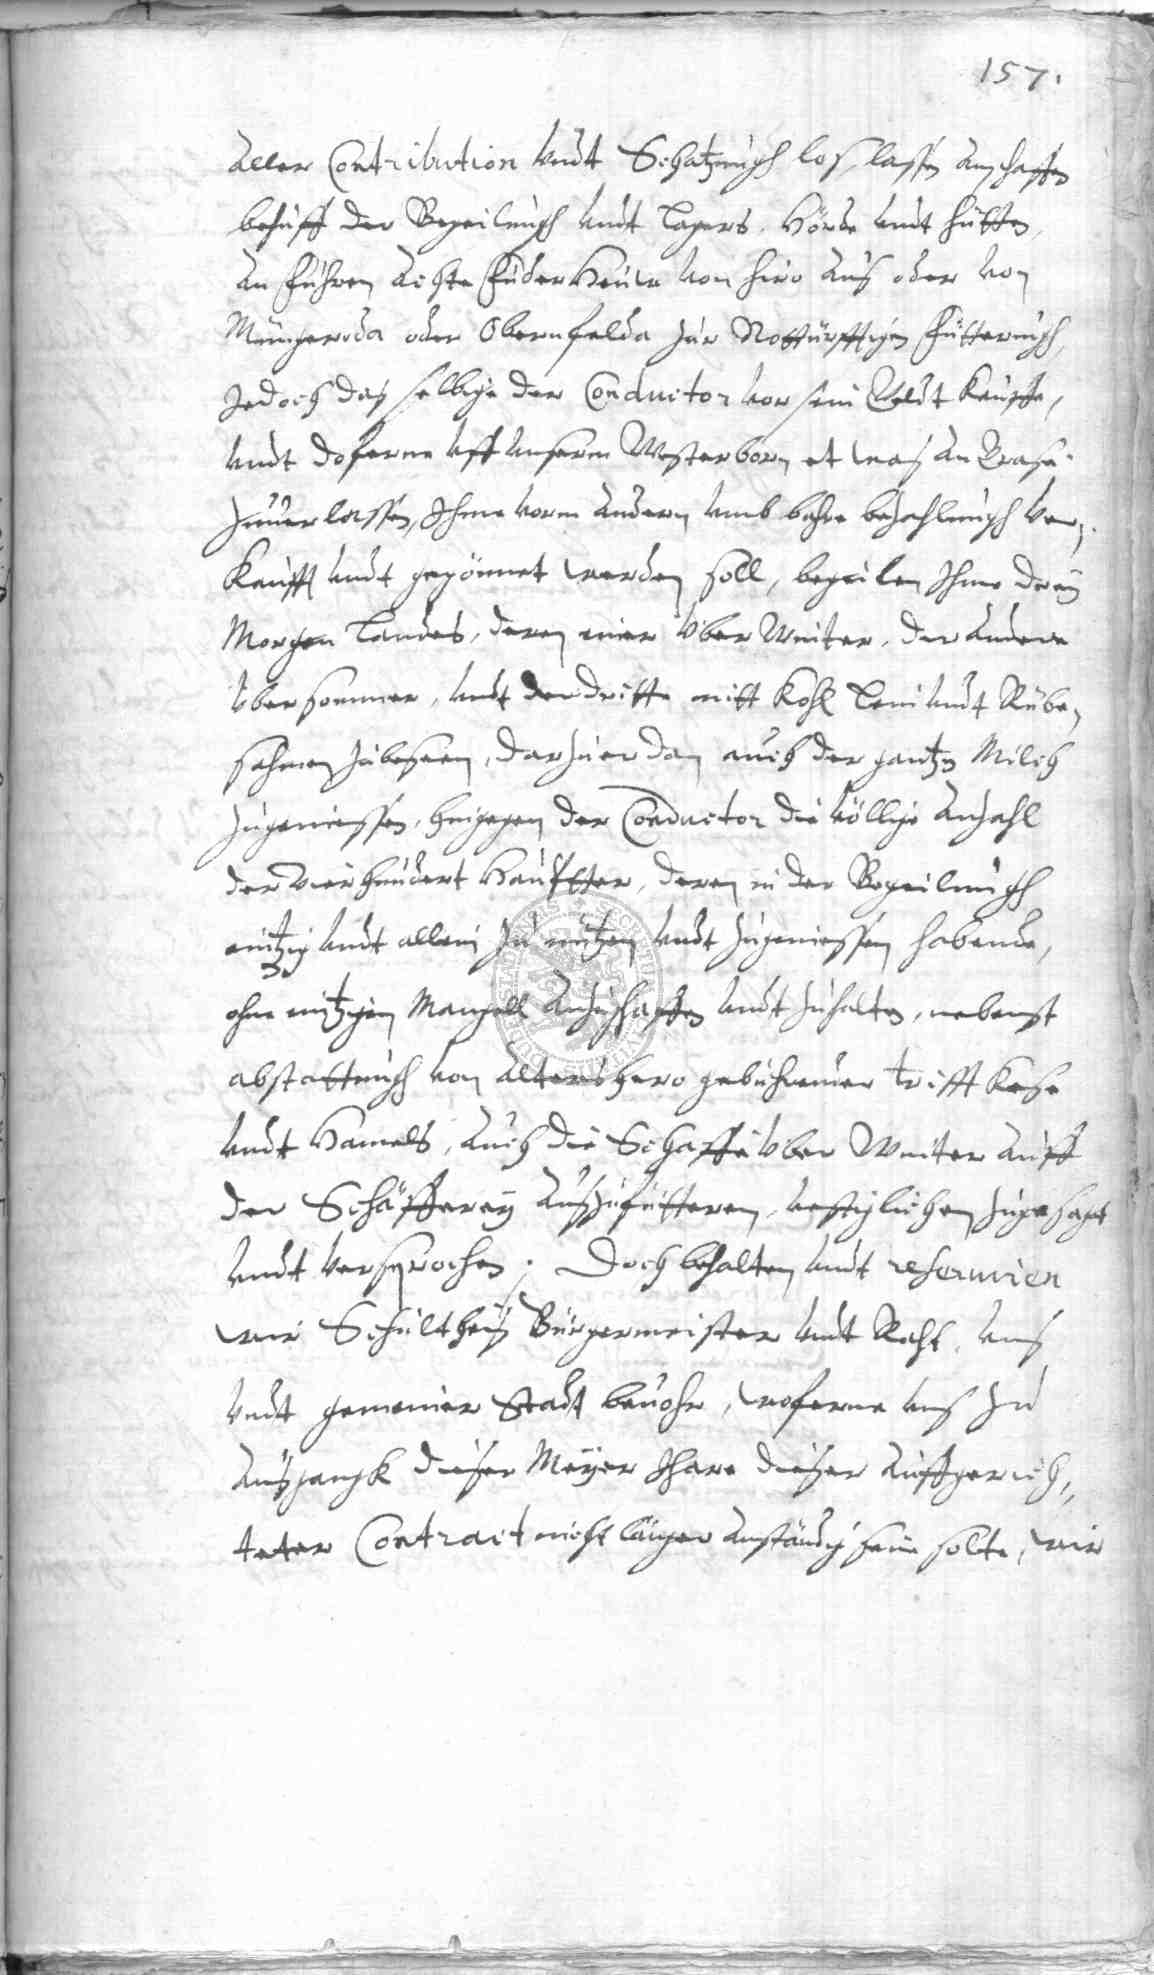 157.
aller Contribution undt Schatzungh loß lassen anschaffen
behuff der Begeilungh undt Lagers, Hörde undt hütten,
an führen achte Fuder Heuw von hiro auß oder von
Mingeroda oder Obernfelda zur Notturfftigen Fütterungh,
Jedoch daß selbige der Conductor vor sein Geldt Kauffe,
undt doferne uff unserm Westerborn et was an Grase
zuuerlassen, Ihme vorm andern umb bahre bezahlungh ver-
Kaufft undt gegönnet werden soll, begeilen Ihme drey
Morgen Landes, deren einer über Winter, der andere
über sommer, undt der dritte mitt Kohl Lein undt Rübe,
sahmen zubeseen, darzu er dan auch der gantzen Milch
zugeniessen, hingegen der Conductor die völlige Anzahl
der vier hundert Häupter, deren in der Begeilungh
eintzig undt allein zu nutzen undt zugeniessen habende,
ohne eintzigen Mangell anzuschaffen undt zuhalten, nebenst
abstattungh von altershero gebührender trifft Kese
undt Hamels, auch die Schaffe über Winter auff
der Schäfferey außzufütteren, vestiglichen zugesagt
undt versprochen; Doch behalten undt reseruiren
wir Schultheiß Bürgermeister undt Raht, unß
undt gemeiner Stadt beuohr, woferne unß zu
außgangk dieser Meyer Jhare dieser auffgerich,,
teter Contract nicht länger anständig sein solte, wir